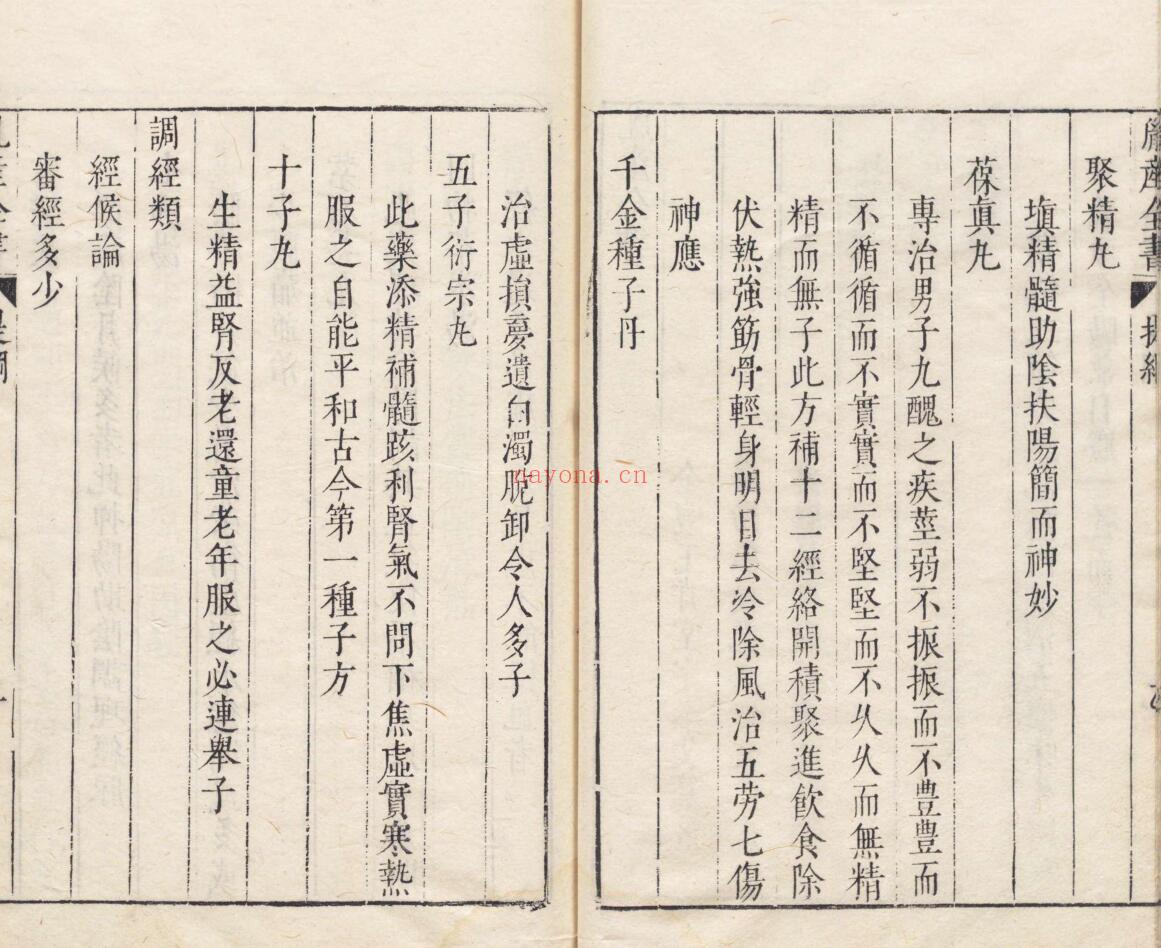 產全書
聚精丸
塡精髓助陰扶陽簡而神妙
葆眞丸
專治男子九醜之疾莖弱不振振而不豊豊而
不循循而不實實而不堅堅而不久久而無精
精而無子此方補十二經絡開積聚進飲食除
伏熱強筋骨輕身明目去冷除風治五勞七傷
神應
千金種子丹
治虛損夢遺白濁脫卸令人多子
五子衍宗丸
此藥添精補髓利腎氣不問下焦虛實寒熱
服之自能平和古今第一種子方
十子丸
生精益腎反老還童老年服之必連舉子
調經類
經候論
審經多少
nayona.cn